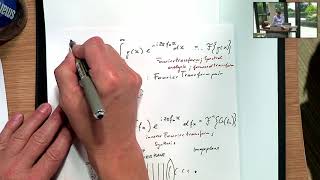 ∫ g(x) e^{-i2πfₓx} dx = : F{g(x)}
Fouriertransform, Spectral
analysis, forward transform
: Fourier Transform pair
) e^{i2πfₓx} dfₓ = F⁻¹{G(fₓ)}
inverse Fourier transform,
Synthesis